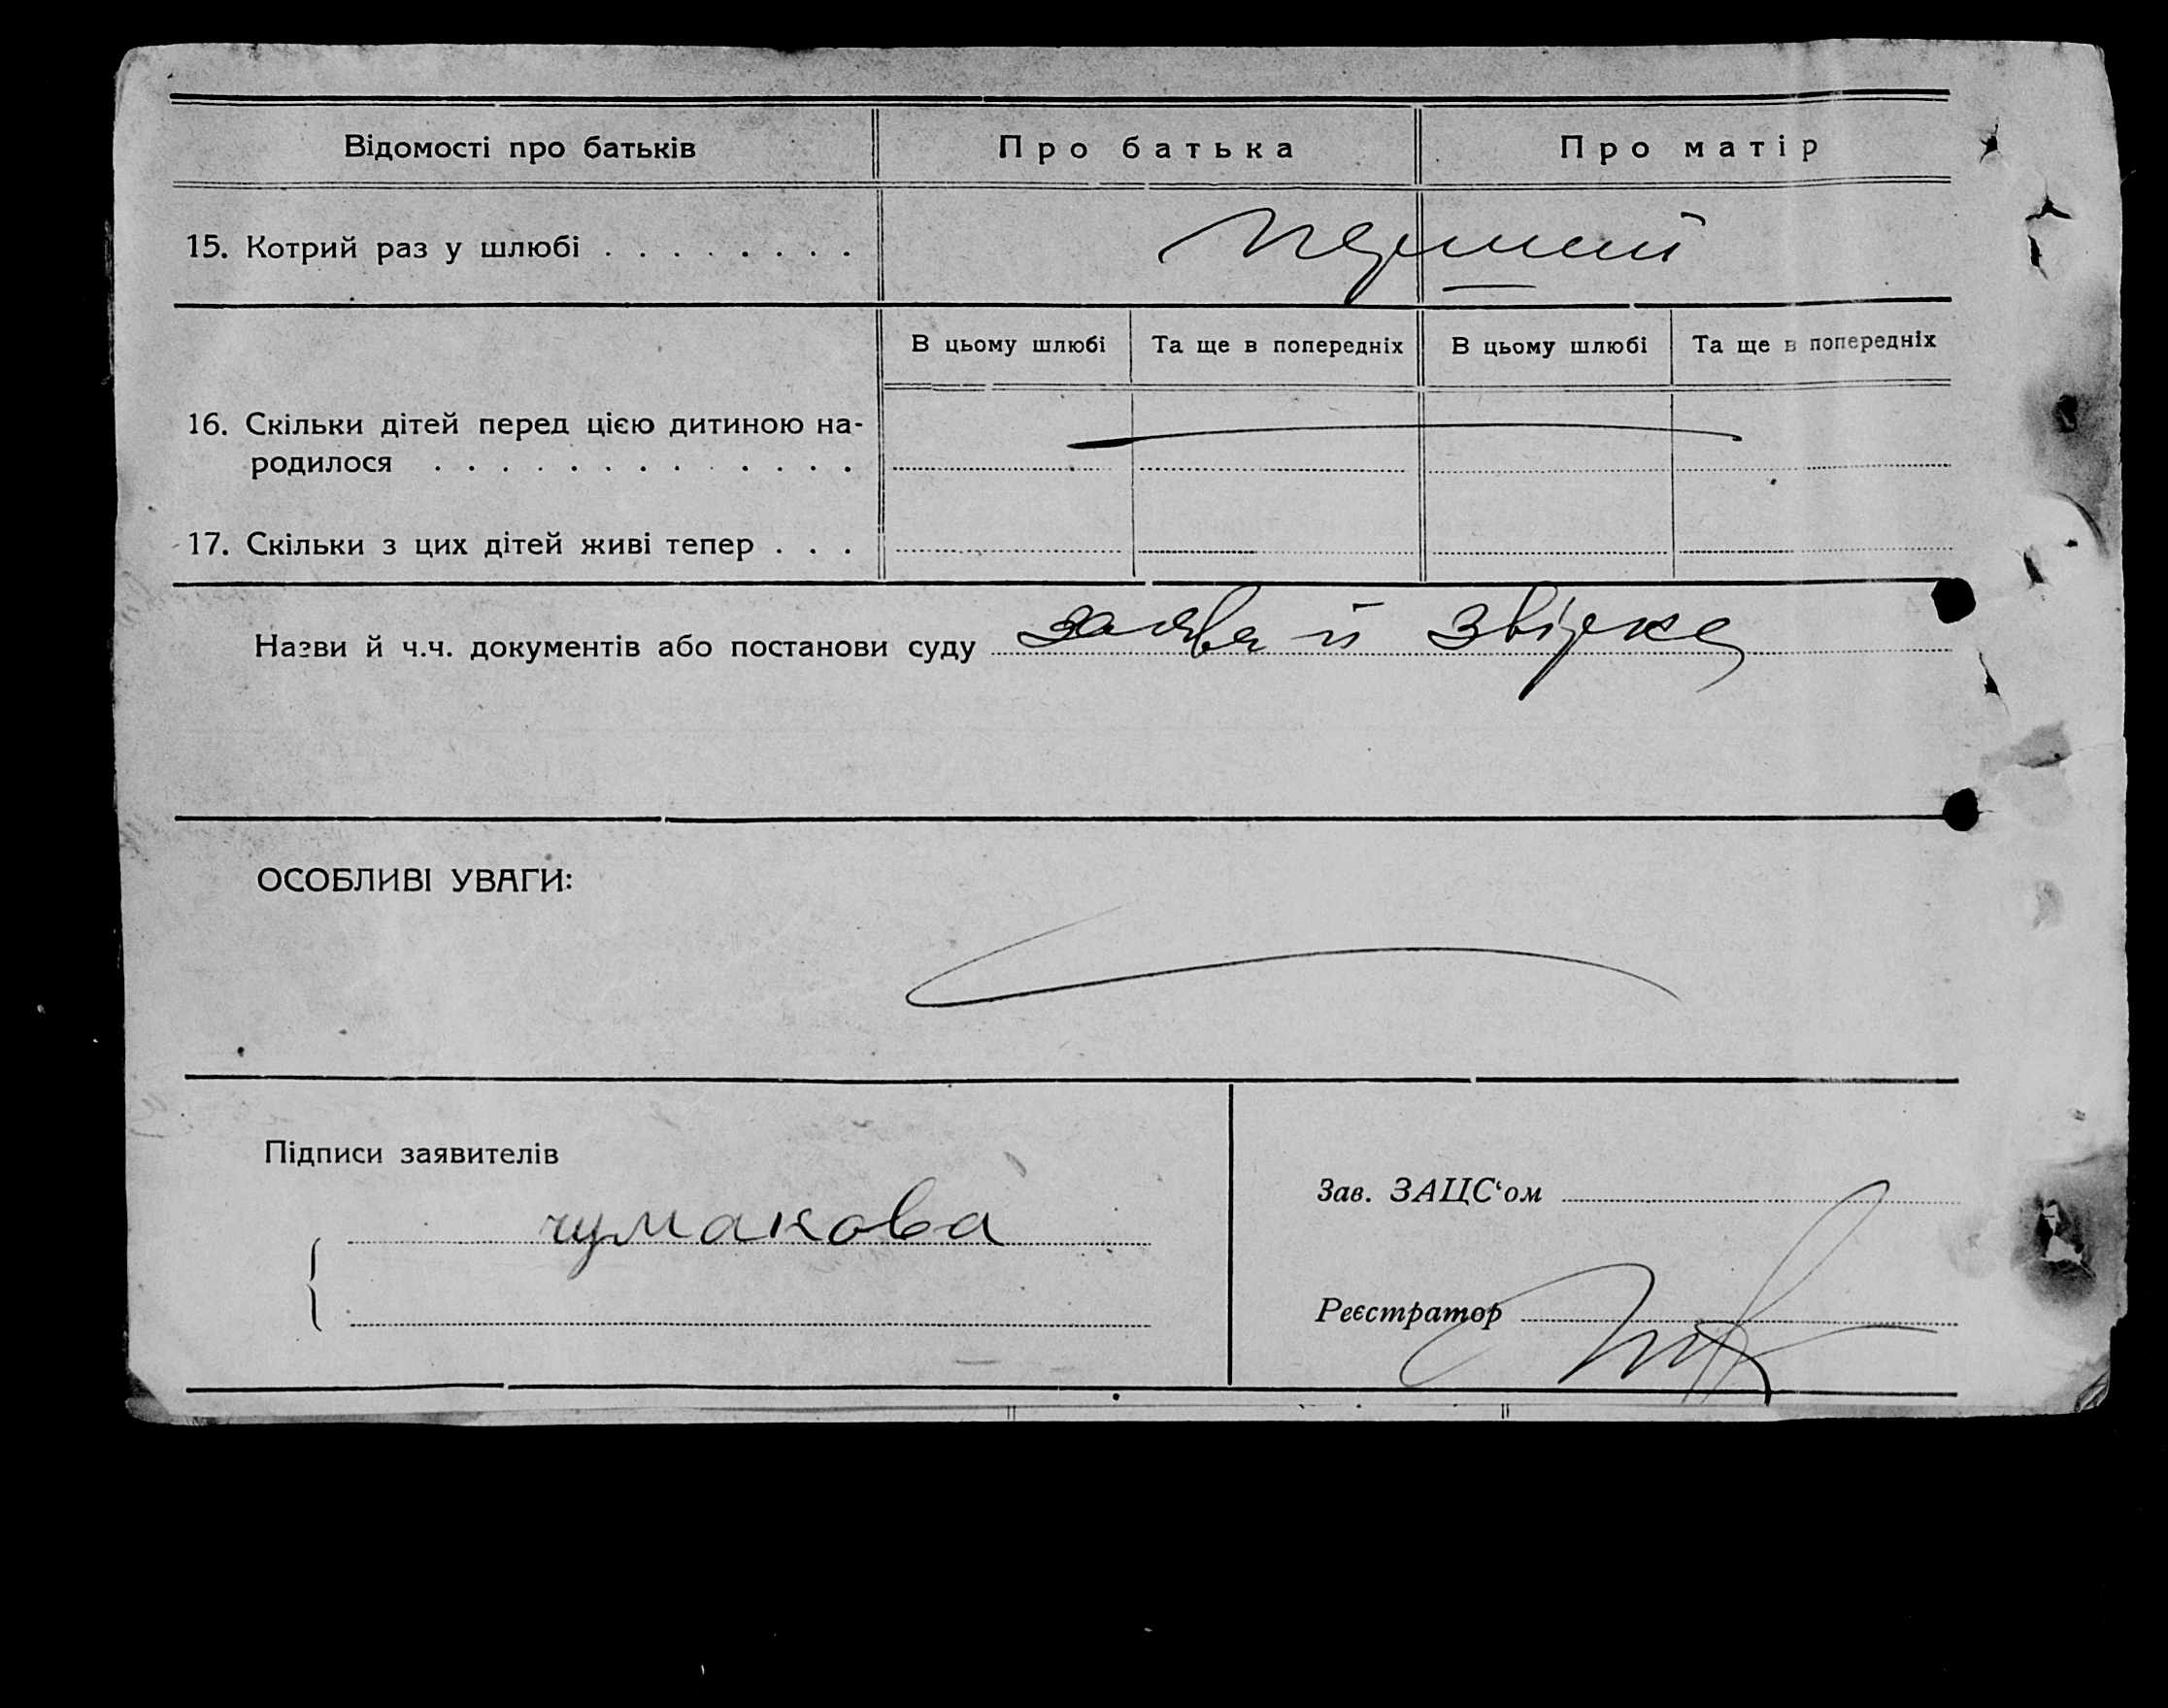 Відомості про батьків Про батька Про матір
15. Котрий раз у шлюбі . . . . . . . . перший
В цьому шлюбі Та ще в попередніх В цьому шлюбі Та ще в попередніх
16. Скільки дітей перед цією дитиною на-
родилося . . . . . . . . . . . . .
17. Скільки з цих дітей живі тепер . . .
Назви й ч.ч. документів або постанови суду заява й звірка
ОСОБЛИВІ УВАГИ:
Підписи заявителів
чумакова
Зав. ЗАЦС‘ом
Реєстратор